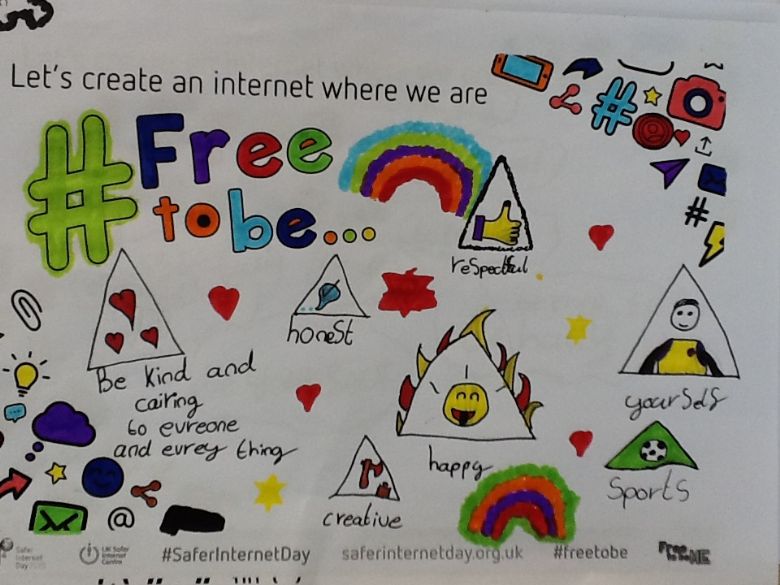 Let's create an internet where we are
#Free
to be...
respectful
honest
Be kind and
cairing
to evreone
and evrey thing
happy
yourself
Sports
creative
@
Safer
Internet
Day
UK Safer
Internet
Centre
#SaferInternetDay
saferinternetday.org.uk
#freetobe
Free
to be ME